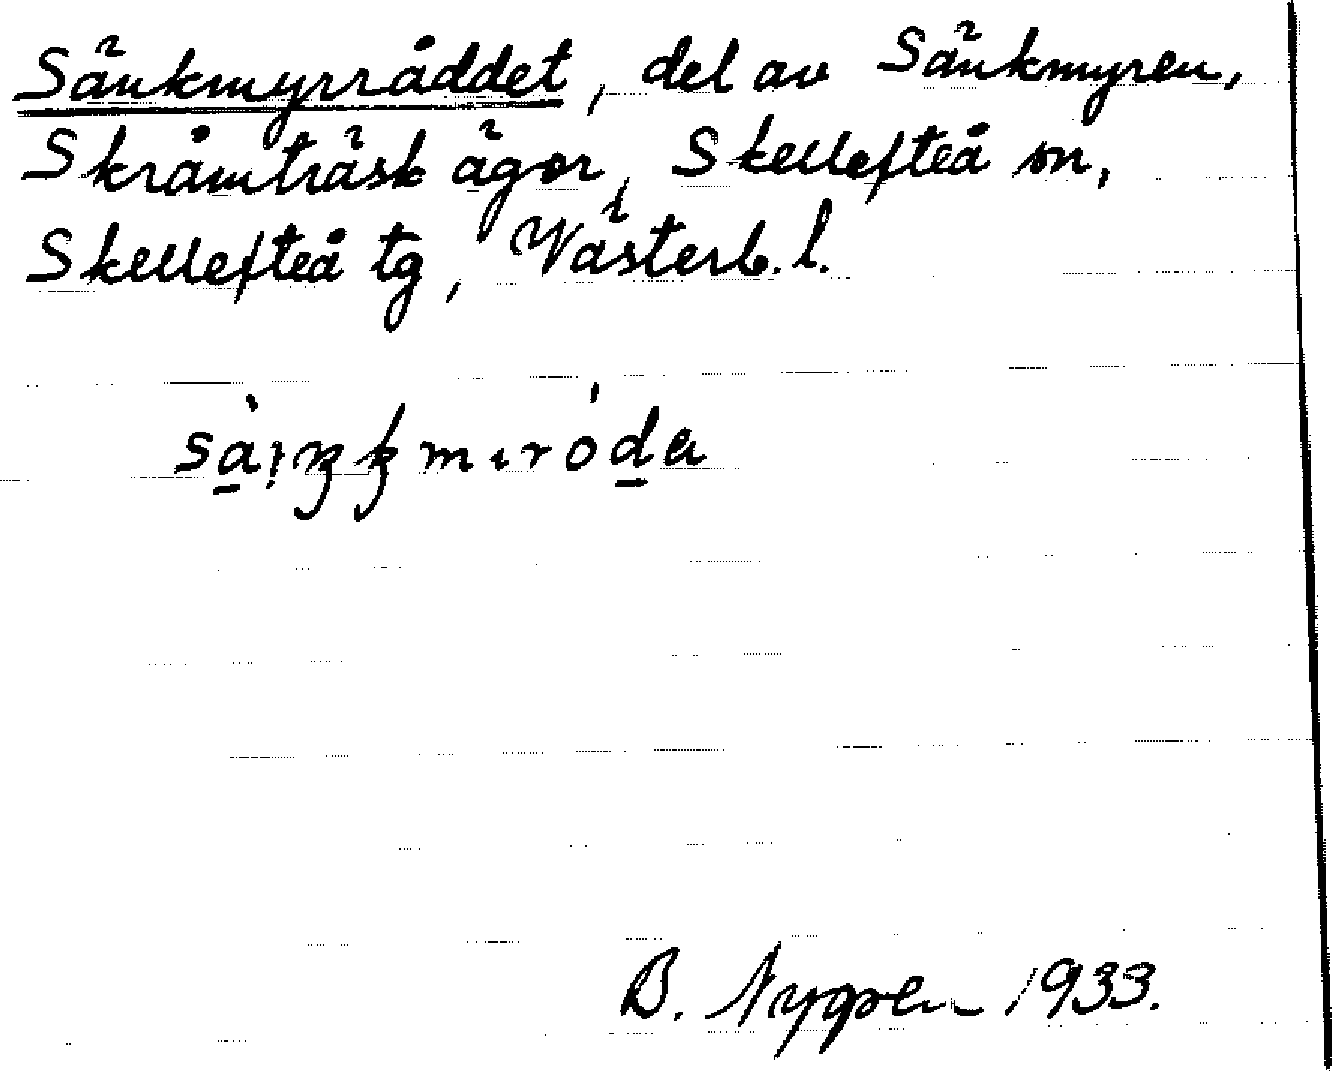 Sänkmyrråddet, del av Sänkmyren,
Skråmträsk ägor, Skellefteå sn,
Skellefteå tg, Västerb. l.
B. Nygren 1933.